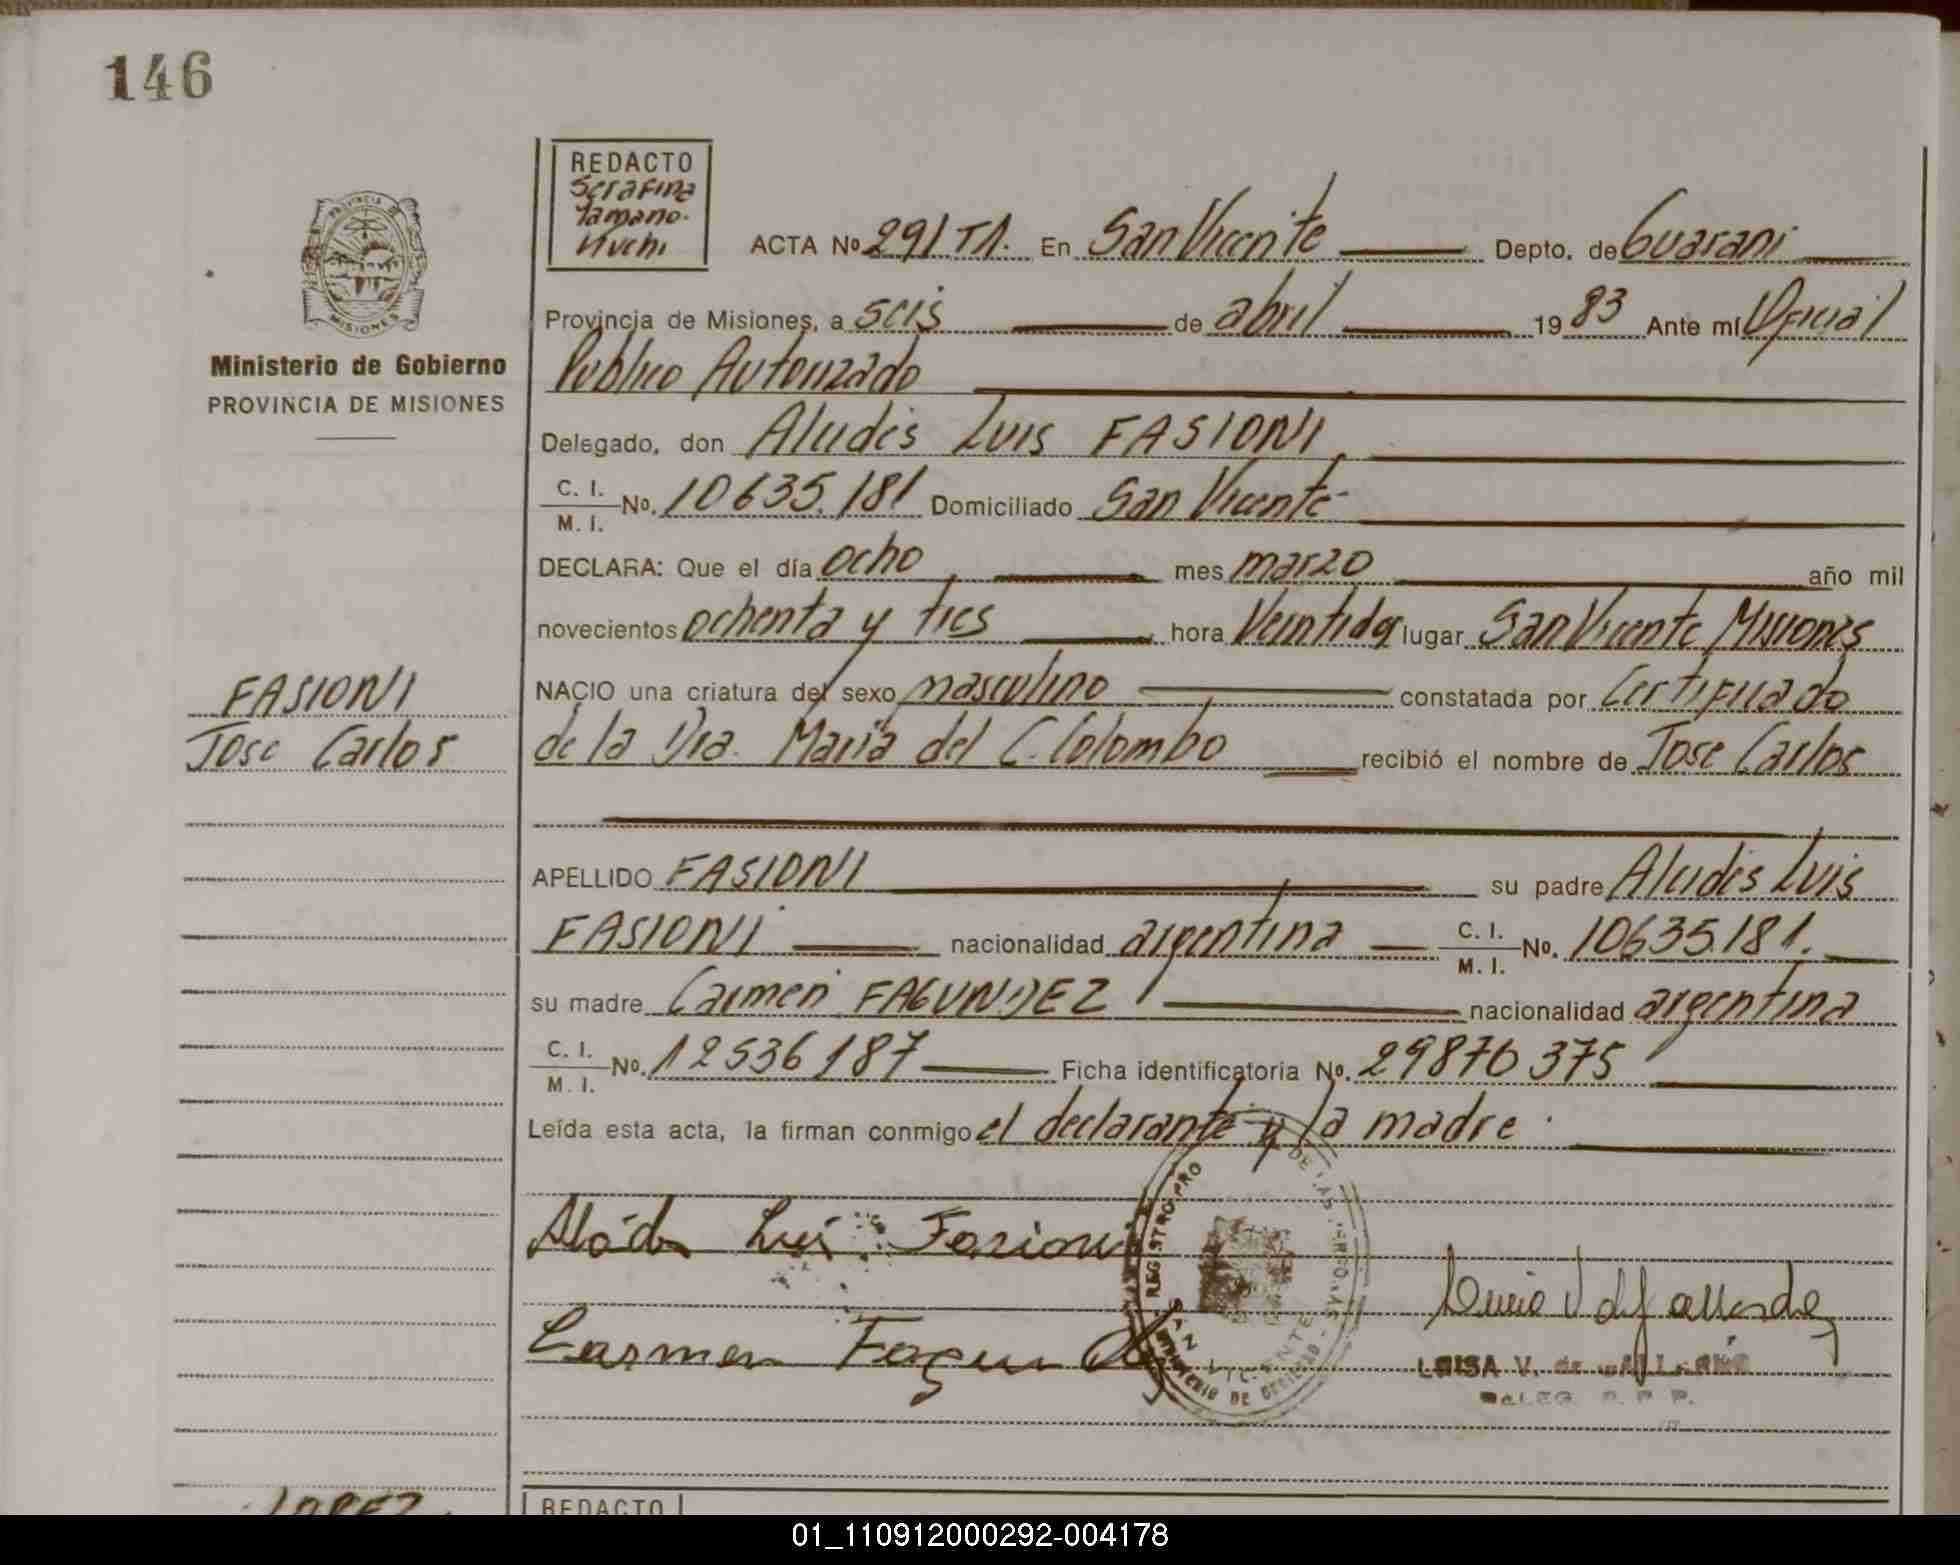 146
REDACTO
Serafina
Tamano.
PROVINCIA DE
MISIONES
Ministerio de Gobierno
PROVINCIA DE MISIONES
ACTA No 291 T1. En San Vicente Depto. de Guarani
Provincia de Misiones, a seis de abril 1983 Ante mí Oficial
Publico Autorizado
Delegado, don Alcides Luis FASIONI
C. I. / M. I. No. 10635.181 Domiciliado San Vicente
DECLARA: Que el día ocho mes marzo año mil
novecientos ochenta y tres hora Veintidos lugar San Vicente Misiones
FASIONI
NACIO una criatura del sexo masculino constatada por Certificado
Jose Carlos
de la Dra. Maria del C. Colombo recibió el nombre de Jose Carlos
APELLIDO FASIONI su padre Alcides Luis
FASIONI nacionalidad argentina C. I. / M. I. No. 10635.181.
su madre Carmen FAGUNDEZ nacionalidad argentina
C. I. / M. I. No. 12536187 Ficha identificatoria No. 29876375
Leída esta acta, la firman conmigo el declarante y la madre.
Luis Fasioni
Carmen
REGISTRO PRO DE LAS PERSONAS
SAN VICENTE
MINISTERIO DE GOBIERNO
LUISA V. de GALLARDO
DELEG. R. P. P.
LOPEZ
REDACTO
01_110912000292-004178